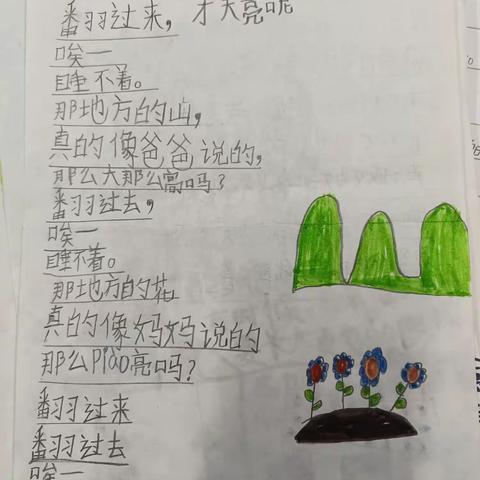 翻过来，才天亮呢
唉—
睡不着。
那地方的山，
真的像爸爸说的，
那么大那么高吗？
翻过去，
唉—
睡不着。
那地方的花
真的像妈妈说的
那么piào亮吗？
翻过来
翻过去
唉—